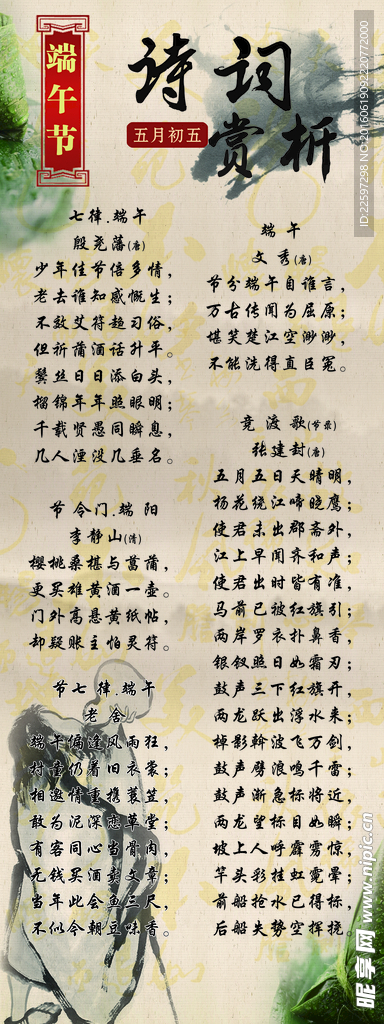 端午节
诗词
赏析
五月初五
七律.端午
殷尧藩(唐)
少年佳节倍多情,
老去谁知感慨生;
不效艾符趋习俗,
但祈蒲酒话升平。
鬓丝日日添白头,
榴锦年年照眼明;
千载贤愚同瞬息,
几人湮没几垂名。
节令门.端阳
李静山(清)
樱桃桑椹与菖蒲,
更买雄黄酒一壶。
门外高悬黄纸帖,
却疑账主怕灵符。
节七律.端午
老舍
端午偏逢风雨狂,
村童仍着旧衣裳;
相邀情重携蓑笠,
敢为泥深恋草堂;
有客同心当骨肉,
无钱买酒卖文章;
当年此会鱼三尺,
不似今朝豆味香。
端午
文秀(唐)
节分端午自谁言,
万古传闻为屈原;
堪笑楚江空渺渺,
不能洗得直臣冤。
竞渡歌(节录)
张建封(唐)
五月五日天晴明,
杨花绕江啼晓鹰;
使君未出郡斋外,
江上早闻齐和声;
使君出时皆有准,
马前已被红旗引;
两岸罗衣扑鼻香,
银钗照日如霜刃;
鼓声三下红旗开,
两龙跃出浮水来;
棹影斡波飞万剑,
鼓声劈浪鸣千雷;
鼓声渐急标将近,
两龙望标目如瞬;
坡上人呼霹雳惊,
竿头彩挂虹霓晕;
前船抢水已得标,
后船失势空挥挠。
ID:22597298 NO:20160619092220772000
昵享网 www.nipic.cn